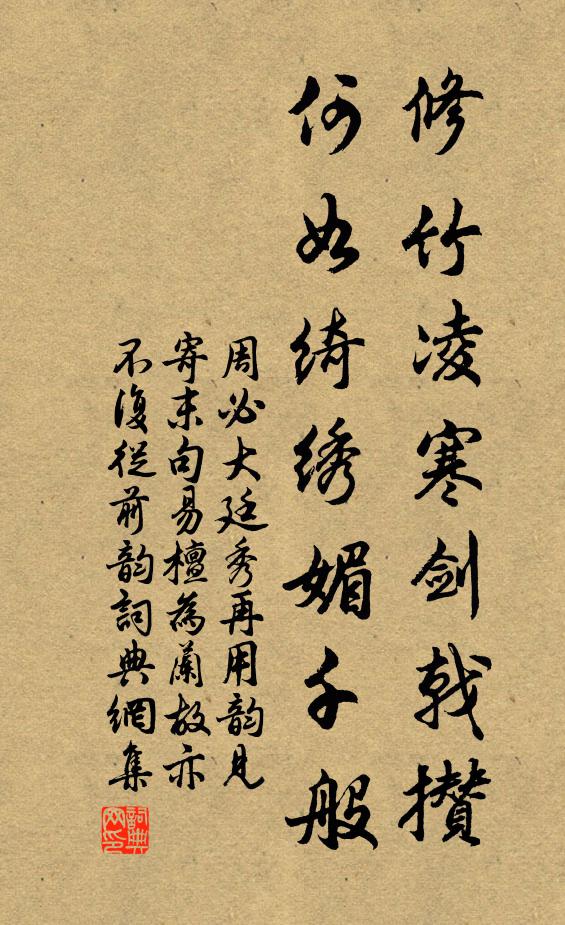 修竹凌寒剑戟攒
何如绮绣媚千般
周必大廷秀再用韵见
寄末句易檀為蘭故亦
不復從前韵詞典網集
詞典网印